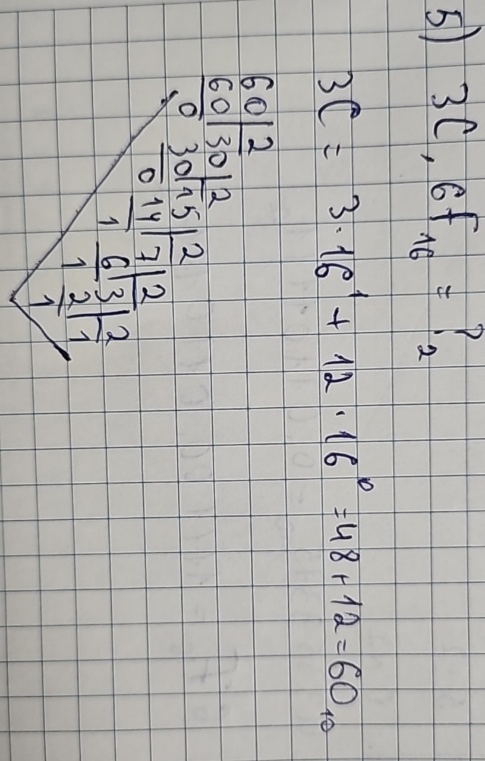 5) 3C,6F₁₆ = ?₂
3C = 3·16¹ + 12·16⁰ = 48 + 12 = 60₁₀
60 2
60 30 2
0 30 15 2
0 14 7 2
1 6 3 2
1 2 1
1